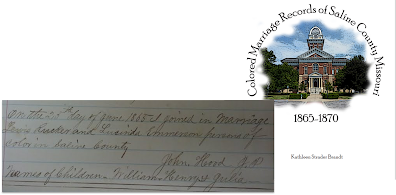 Colored Marriage Records of Saline County Missouri
1865-1870
Kathleen Strader Brandt
On the day of June 1865 I joined in Marriage
Lewis and Lucinda persons of
color in Saline County
John Hood J.P.
Names of Children William Henry & Julia